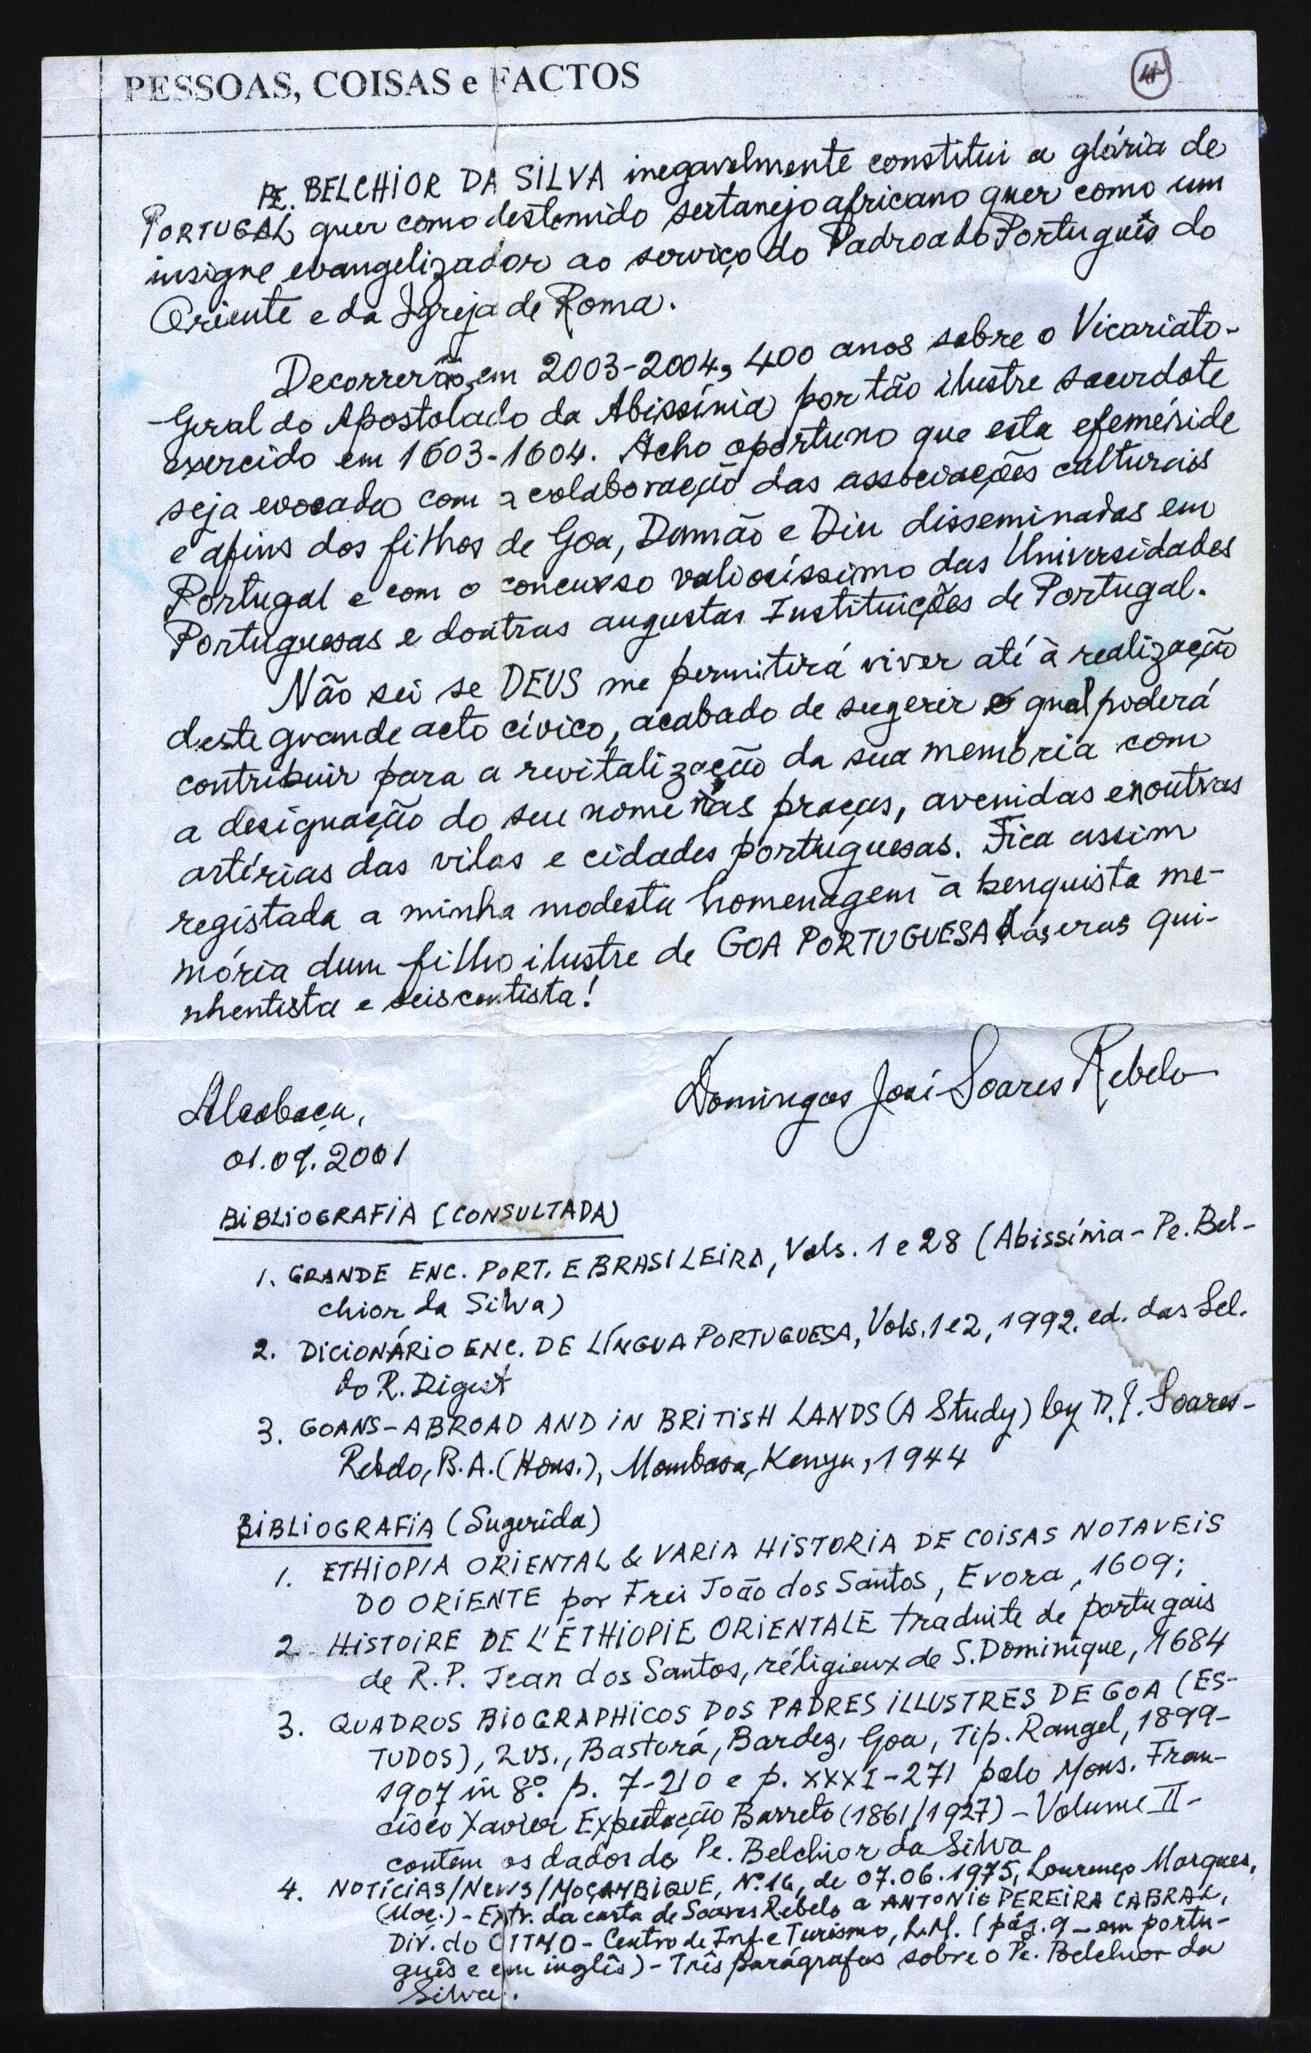 PESSOAS, COISAS e FACTOS
4
PE. BELCHIOR DA SILVA inegavelmente constitui a glória de
PORTUGAL quer como destemido sertanejo africano quer como um
insigne evangelizador ao serviço do Padroado Português do
Oriente e da Igreja de Roma.
Decorrerão, em 2003-2004, 400 anos sobre o Vicariato-
-Geral do Apostolado da Abissínia por tão ilustre sacerdote
exercido em 1603-1604. Acho oportuno que esta efeméride
seja evocada com a colaboração das associações culturais
e afins dos filhos de Goa, Damão e Diu disseminadas em
Portugal e com o concurso valiosíssimo das Universidades
Portuguesas e doutras augustas Instituições de Portugal.
Não sei se DEUS me permitirá viver até à realização
deste grande acto cívico, acabado de sugerir o qual poderá
contribuir para a revitalização da sua memória com
a designação do seu nome nas praças, avenidas e noutras
artérias das vilas e cidades portuguesas. Fica assim
registada a minha modesta homenagem à benquista me-
mória dum filho ilustre de GOA PORTUGUESA das eras qui-
nhentista e seiscentista!
Domingos José Soares Rebelo
Alcobaça,
01.09.2001
BIBLIOGRAFIA (CONSULTADA)
1. GRANDE ENC. PORT. E BRASILEIRA, Vols. 1 e 28 (Abissínia - Pe. Bel-
chior da Silva)
2. DICIONÁRIO ENC. DE LÍNGUA PORTUGUESA, Vols. 1 e 2, 1992. ed. das Sel.
do R. Digest
3. GOANS-ABROAD AND IN BRITISH LANDS (A Study) by D.J. Soares-
Rebelo, B.A. (Hons.), Mombasa, Kenya, 1944
BIBLIOGRAFIA (Sugerida)
1. ETHIOPIA ORIENTAL & VARIA HISTORIA DE COISAS NOTAVEIS
DO ORIENTE por Frei João dos Santos, Evora, 1609;
2 HISTOIRE DE L'ÉTHIOPIE ORIENTALE traduite de portugais
de R.P. Jean dos Santos, réligieux de S. Dominique, 1684
3. QUADROS BIOGRAPHICOS DOS PADRES ILLUSTRES DE GOA (ES-
TUDOS), 2 vs., Bastorá, Bardez, Goa, Tip. Rangel, 1899-
1907 in 8º p. 7-210 e p. XXXI-271 pelo Mons. Fran-
cisco Xavier Expectação Barreto (1861/1927) - Volume II -
contem os dados do Pe. Belchior da Silva
4. NOTÍCIAS/NEWS/MOÇAMBIQUE, Nº. 16, de 07.06.1975, Lourenço Marques,
(Moç.) - Extr. da carta de Soares Rebelo a ANTONIO PEREIRA CABRAL,
Div. do CITMO - Centro de Inf. e Turismo, L.M. (pág. 9 - em portu-
guês e em inglês) - Três parágrafos sobre o Pe. Belchior da
Silva.